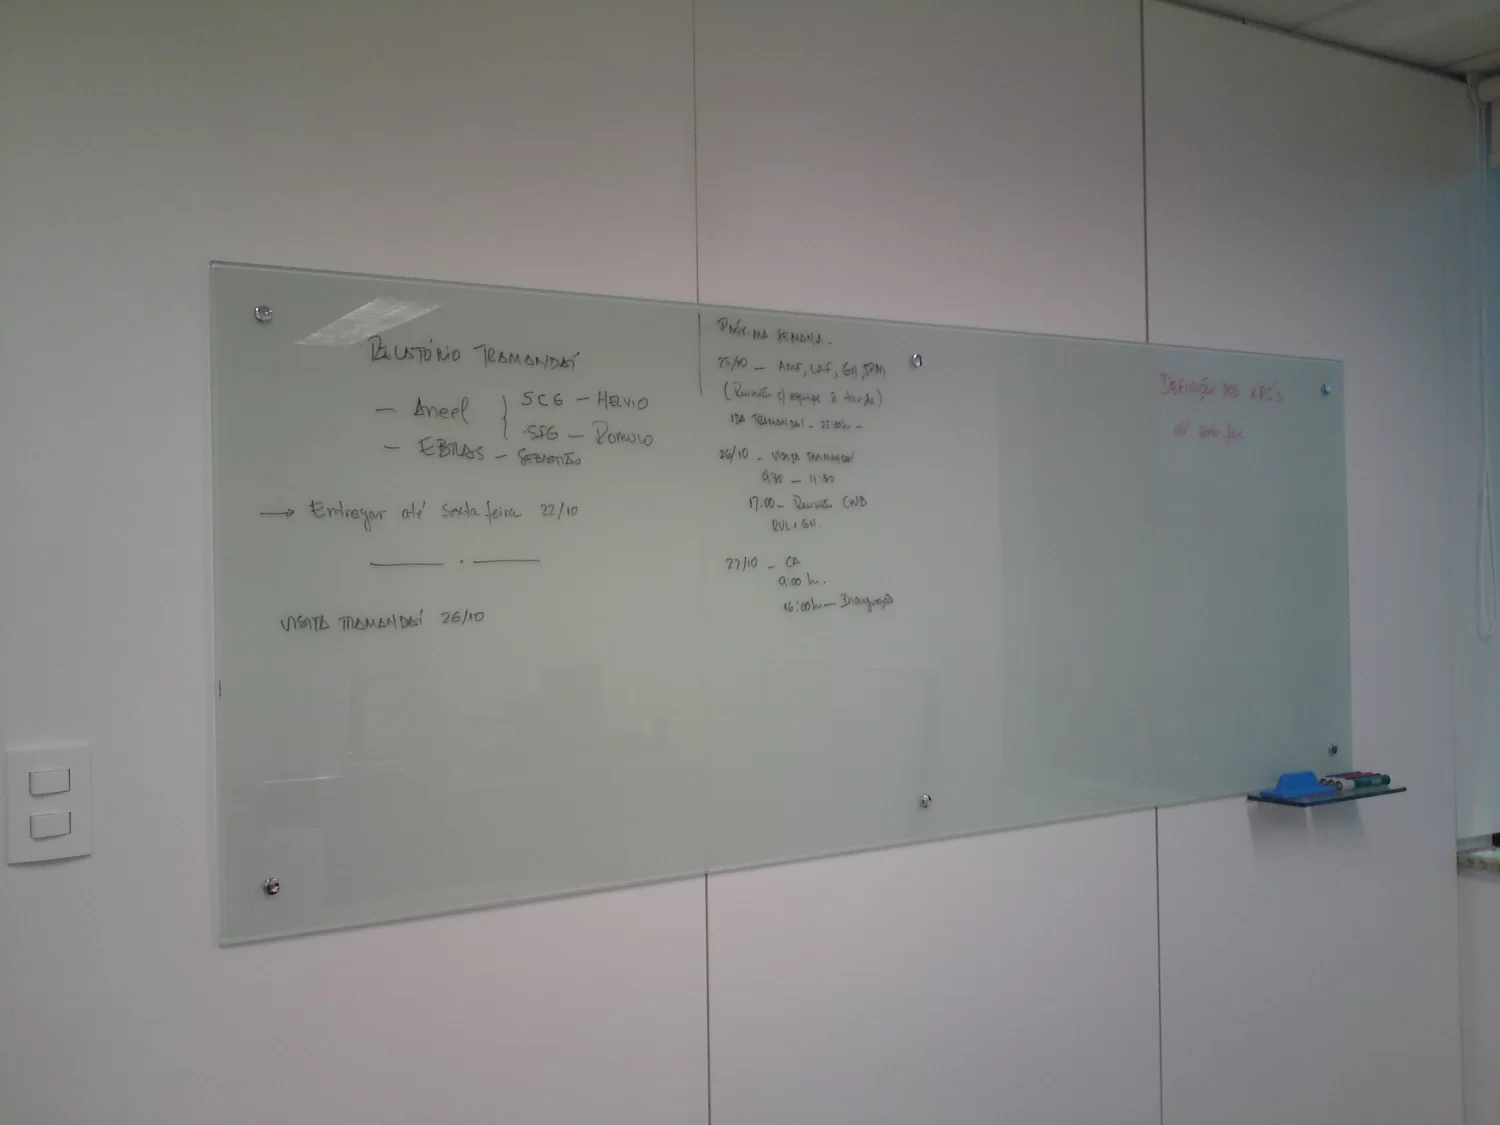 RELATÓRIO TRAMANDAÍ
- Aneel } SCG - HELVIO
.SFG - ROMULO
- EBRAS - SEBASTIÃO
→ Entregar até Sexta feira 22/10
VISITA TRAMANDAÍ 26/10
PRÓXIMA SEMANA.
25/10 - AMF, LAF, GH,
(Reunião c/ equipe à tarde)
IDA TRAMANDAÍ -
26/10 - VISITA TRAMANDAÍ
9:30 - 11:30
17:00 - Reunião CWB
27/10 - CA
9:00 h.
16:00h -
DEFINIÇÃO DOS
até sexta feira